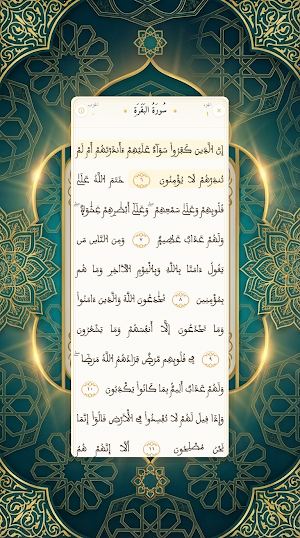 سُورَةُ البَقَرَةِ
إِنَّ ٱلَّذِينَ كَفَرُوا۟ سَوَآءٌ عَلَيْهِمْ ءَأَنذَرْتَهُمْ أَمْ لَمْ
تُنذِرْهُمْ لَا يُؤْمِنُونَ ٦ خَتَمَ ٱللَّهُ عَلَىٰ
قُلُوبِهِمْ وَعَلَىٰ سَمْعِهِمْ ۖ وَعَلَىٰٓ أَبْصَٰرِهِمْ غِشَٰوَةٌ ۖ
وَلَهُمْ عَذَابٌ عَظِيمٌ ٧ وَمِنَ ٱلنَّاسِ مَن
يَقُولُ ءَامَنَّا بِٱللَّهِ وَبِٱلْيَوْمِ ٱلْءَاخِرِ وَمَا هُم
بِمُؤْمِنِينَ ٨ يُخَٰدِعُونَ ٱللَّهَ وَٱلَّذِينَ ءَامَنُوا۟
وَمَا يَخْدَعُونَ إِلَّآ أَنفُسَهُمْ وَمَا يَشْعُرُونَ
٩ فِى قُلُوبِهِم مَّرَضٌ فَزَادَهُمُ ٱللَّهُ مَرَضًا ۖ
وَلَهُمْ عَذَابٌ أَلِيمٌۢ بِمَا كَانُوا۟ يَكْذِبُونَ ١٠
وَإِذَا قِيلَ لَهُمْ لَا تُفْسِدُوا۟ فِى ٱلْأَرْضِ قَالُوٓا۟ إِنَّمَا
نَحْنُ مُصْلِحُونَ ١١ أَلَآ إِنَّهُمْ هُمُ